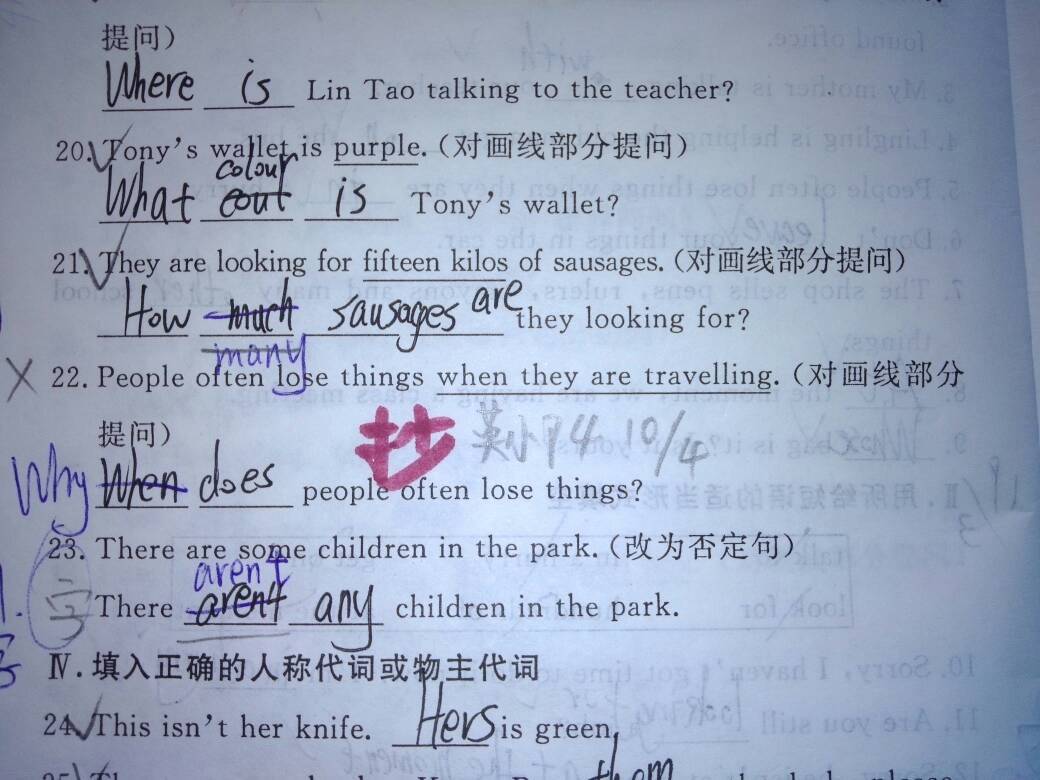 提问)
Where is Lin Tao talking to the teacher?
20. Tony's wallet is purple. (对画线部分提问)
colour
What cout is Tony's wallet?
21. They are looking for fifteen kilos of sausages. (对画线部分提问)
How much sausages are they looking for?
many
22. People often lose things when they are travelling. (对画线部分
提问)
抄 英小 P4 10/4
Why When does people often lose things?
23. There are some children in the park. (改为否定句)
aren't
字 There arent any children in the park.
Ⅳ. 填入正确的人称代词或物主代词
24. This isn't her knife. Hers is green.
them